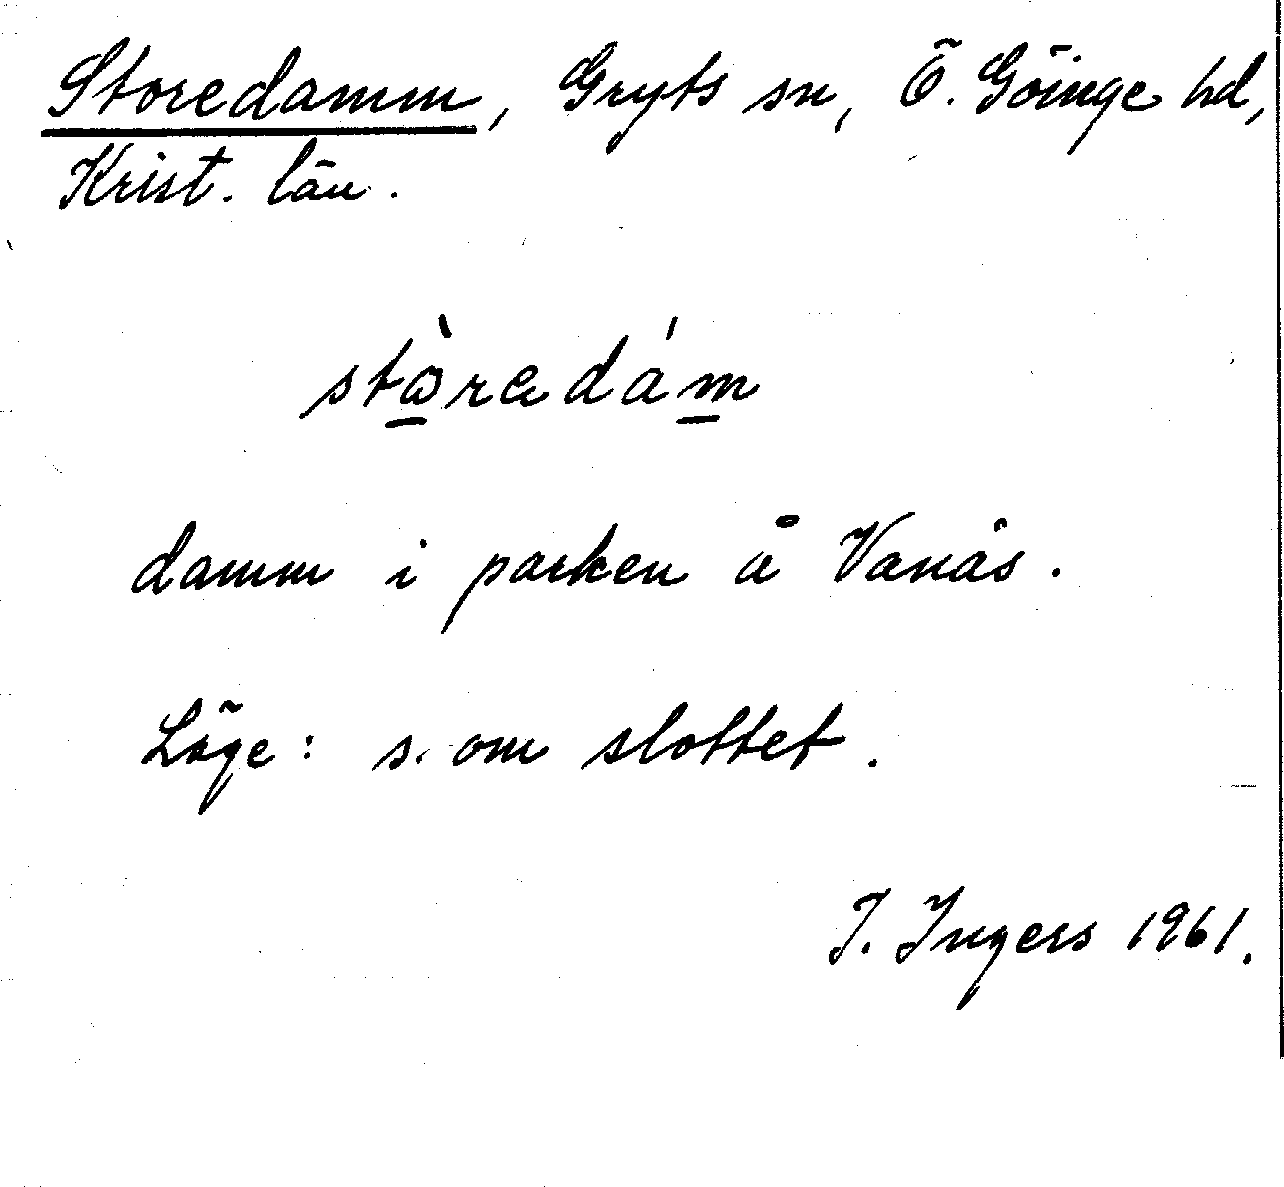 Storedamm, Gryts sn, Ö. Göinge hd,
Krist. län.
damm i parken å Vanås.
Läge: s. om slottet.
I. Ingers 1961.